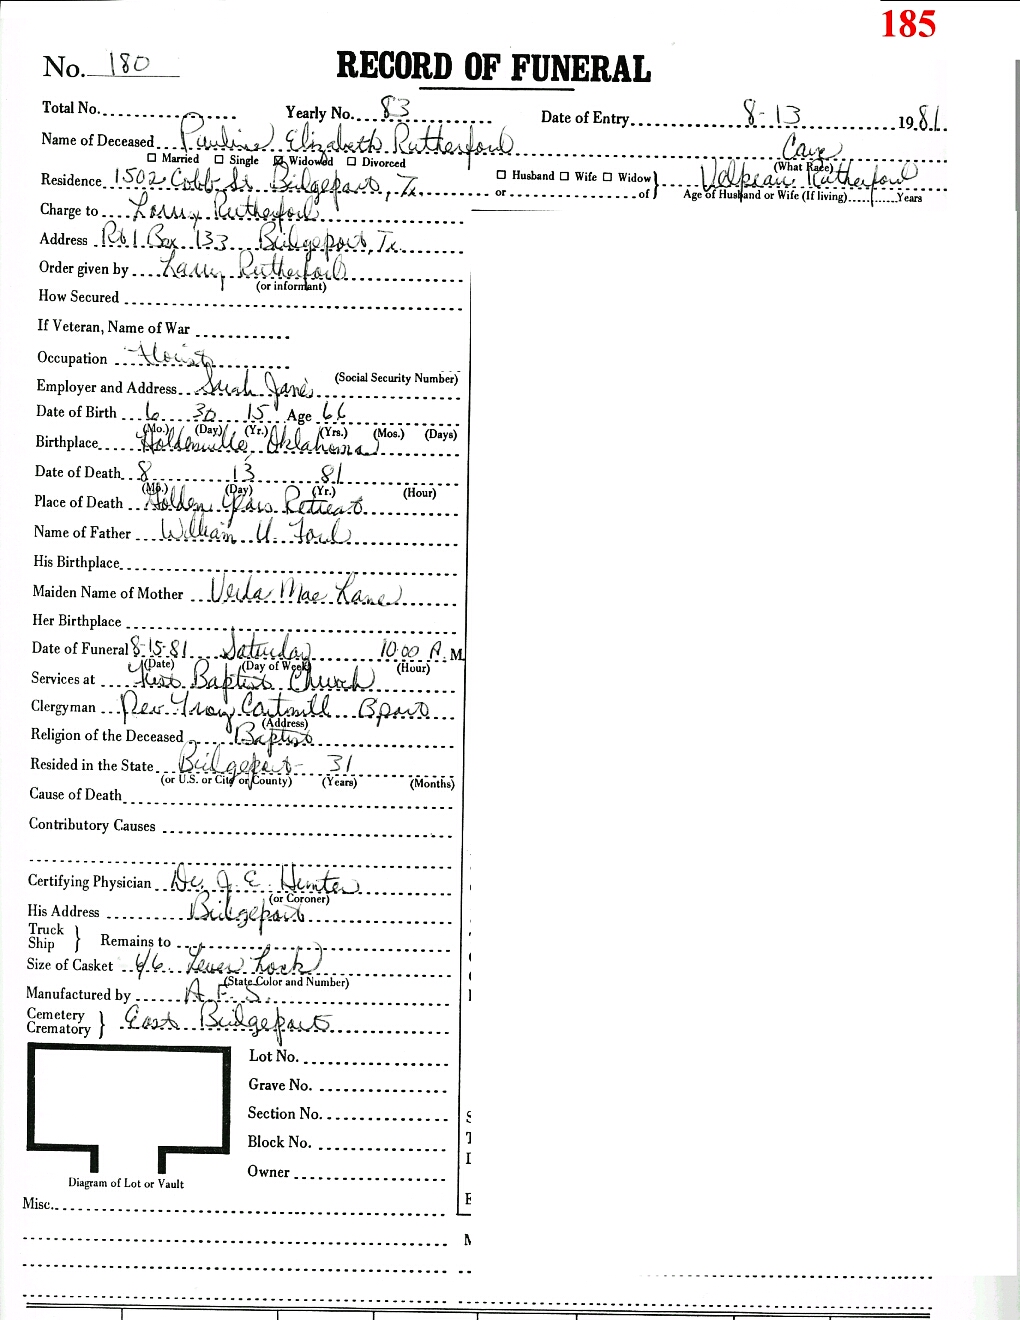 185
No. 180 RECORD OF FUNERAL
Total No. Yearly No. 83 Date of Entry 8-13 1981
Name of Deceased Pauline Elizabeth Rutherford Cauc
Married Single Widowed Divorced (What Race)
Residence 1502 Cobb St Bridgeport, Tx. Husband Wife Widow } Rutherford
or of Age of Husband or Wife (If living) Years
Charge to Larry Rutherford
Address Rt 1 Box 133 Bridgeport, Tx
Order given by Larry Rutherford
(or informant)
How Secured
If Veteran, Name of War
Occupation Florist
(Social Security Number)
Employer and Address Sarah Jane's
Date of Birth 6 30 15 Age 66
(Mo.) (Day) (Yr.) (Yrs.) (Mos.) (Days)
Birthplace Holdenville, Oklahoma
Date of Death 8 13 81
(Mo.) (Day) (Yr.) (Hour)
Place of Death Golden Years Retreat
Name of Father William U. Ford
His Birthplace
Maiden Name of Mother Mae Lane
Her Birthplace
Date of Funeral 8-15-81 Saturday 10:00 A. M
(Date) (Day of Week) (Hour)
Services at First Baptist Church
Clergyman Rev Troy Cartmill Bport
(Address)
Religion of the Deceased Baptist
Resided in the State Bridgeport - 31
(or U.S. or City or County) (Years) (Months)
Cause of Death
Contributory Causes
Certifying Physician Dr. J. E. Hunter
(or Coroner)
His Address Bridgeport
Truck
Ship } Remains to
Size of Casket 6/6 Lever Lock
(State Color and Number)
Manufactured by A.F.S.
Cemetery
Crematory } East Bridgeport
Lot No.
Grave No.
Section No.
Block No.
Owner
Diagram of Lot or Vault
Misc.